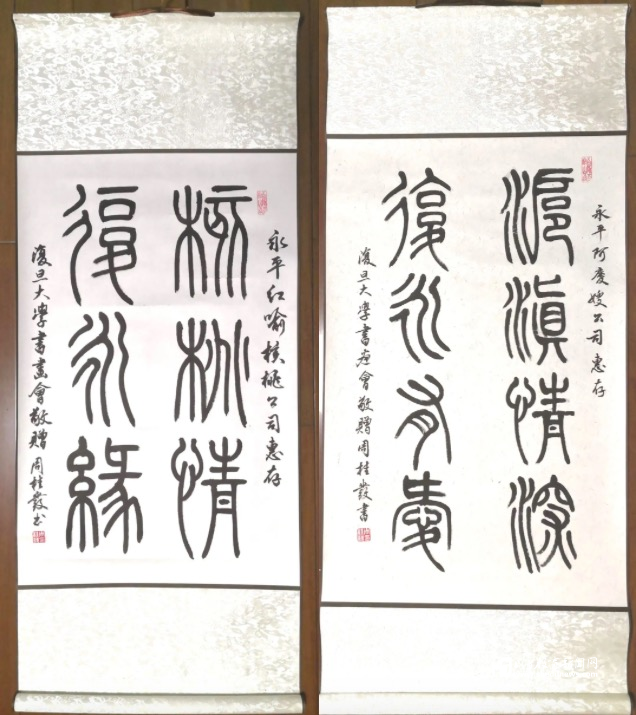 永平红喻核桃公司惠存
核桃情
復永緣
復旦大學書畫會敬贈 周桂發书
永平阿慶嫂公司惠存
滬滇情深
復永有愛
復旦大學書畫會敬贈周桂發書